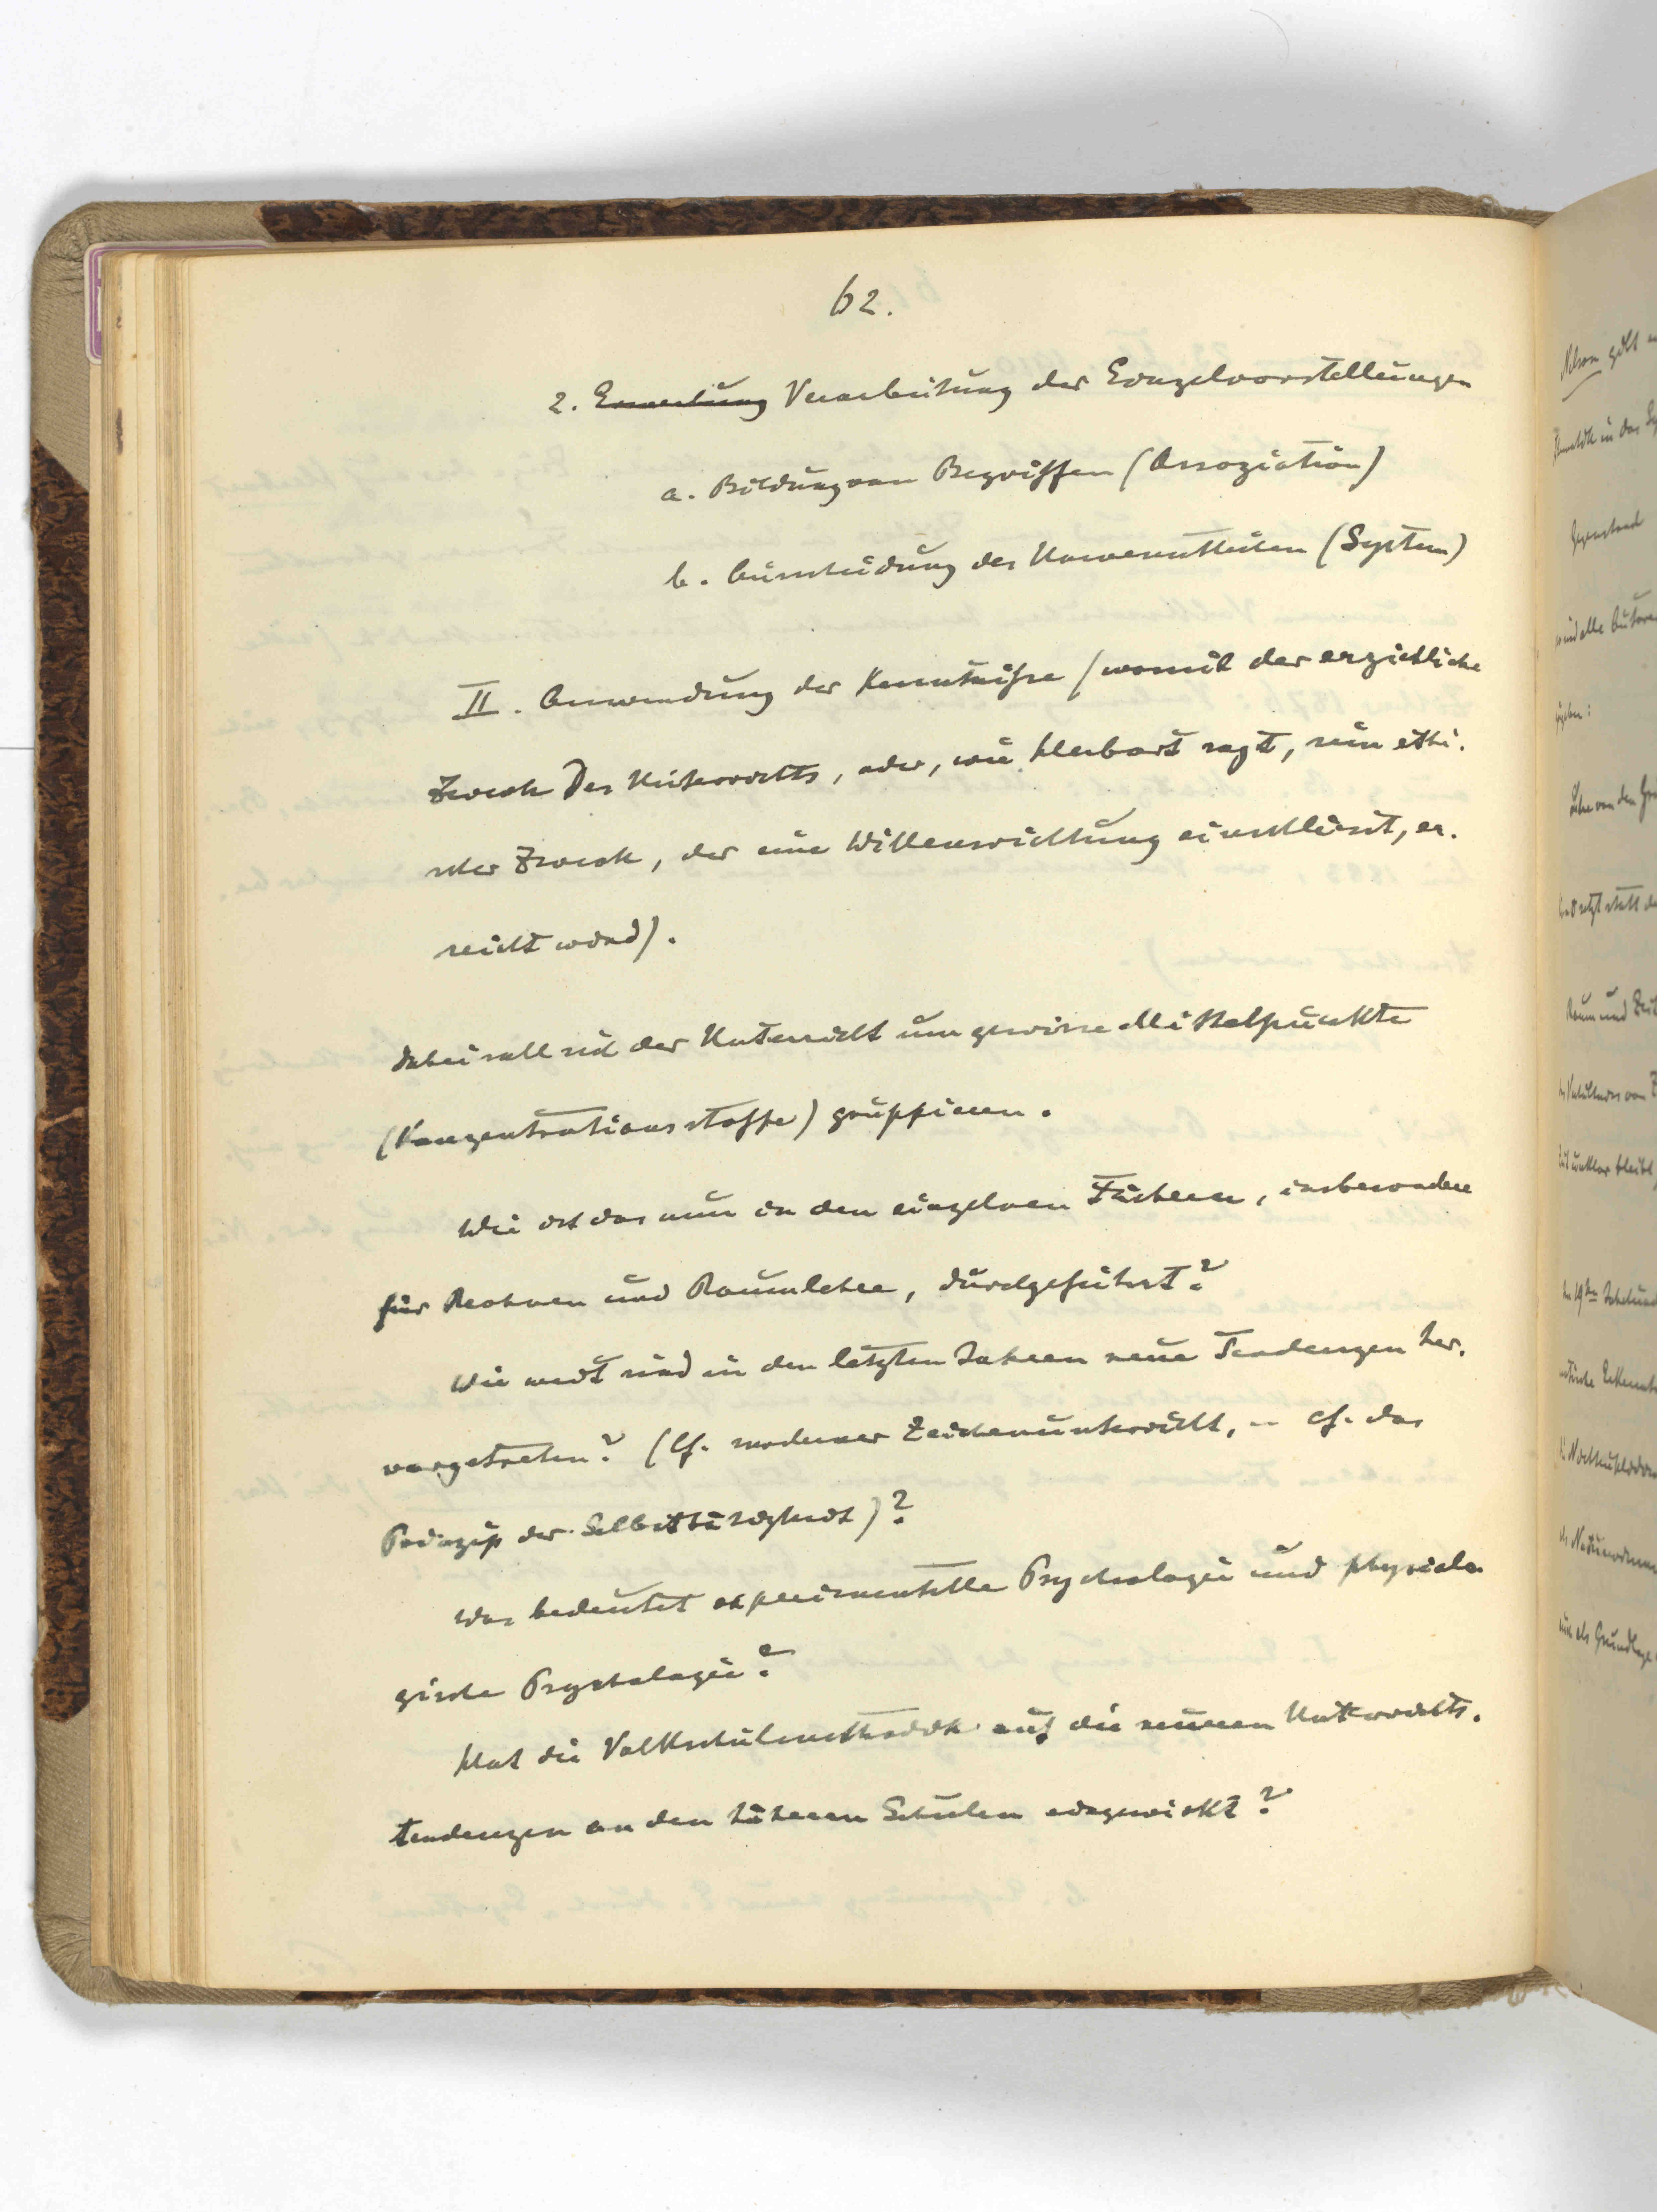 62.
2. Erwerbung Verarbeitung der Einzelvorstellungen
a. Bildung von Begriffen (Assoziation)
b. Ausscheidung des Unwesentlichen (System)
II. Anwendung der Kenntnisse (womit der erziehliche
Zweck des Unterrichts, oder, wie Herbart sagt, sein ethi-
scher Zweck, der eine Willensrichtung einschliesst, er-
reicht wird).
Dabei soll sich der Unterricht um gewisse Mittelpunkte
(Konzentrationsstoffe) gruppieren.
Wie ist das nun in den einzelnen Fächern, insbesondere
für Rechnen und Raumlehre, durchgeführt?
Wie weit sind in den letzten Jahren neue Tendenzen her-
vorgetreten? (Cf. moderner Zeichenunterricht, – cf. das
Prinzip der Selbsttätigkeit)?
Was bedeutet experimentelle Psychologie und physiolo-
gische Psychologie?
Hat die Volksschulmethodik auf die neueren Unterrichts-
tendenzen an den höheren Schulen eingewirkt?
Nelson gibt
in das
Gegenstand
sind alle Autoren
Lehre von den
Raum und Zeit
unklar bleibt
Im 19ten Jahrhund
als Grundlage